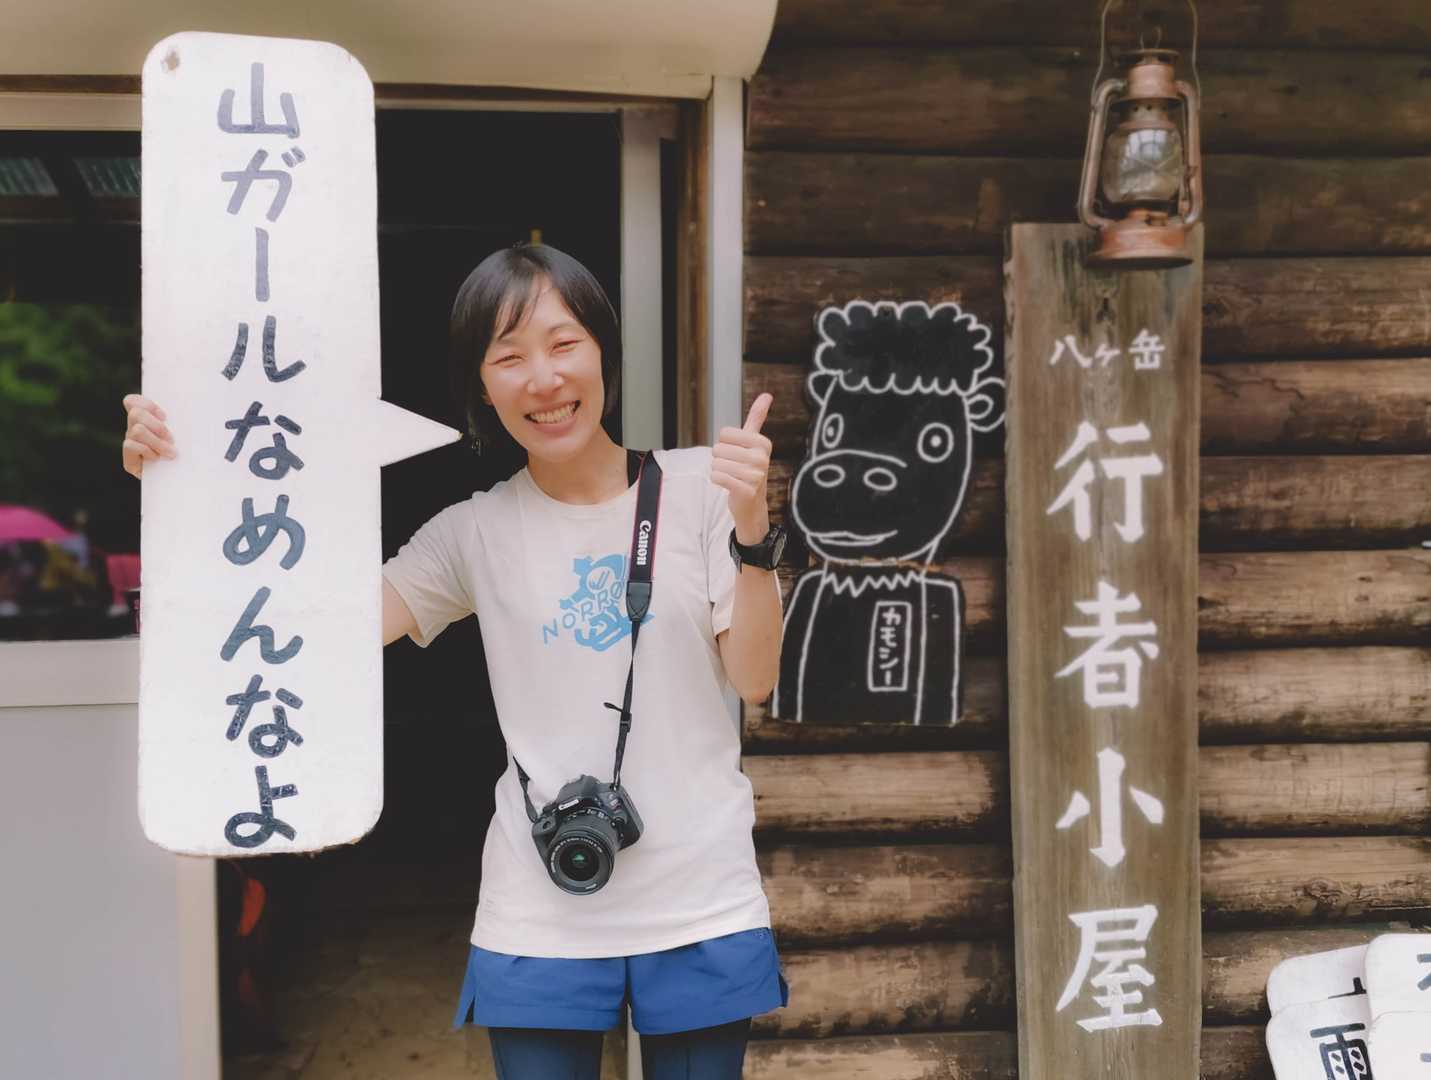 山ガールなめんなよ
Canon
NORRØ
Canon
カモシー
八ヶ岳
行者小屋
雨